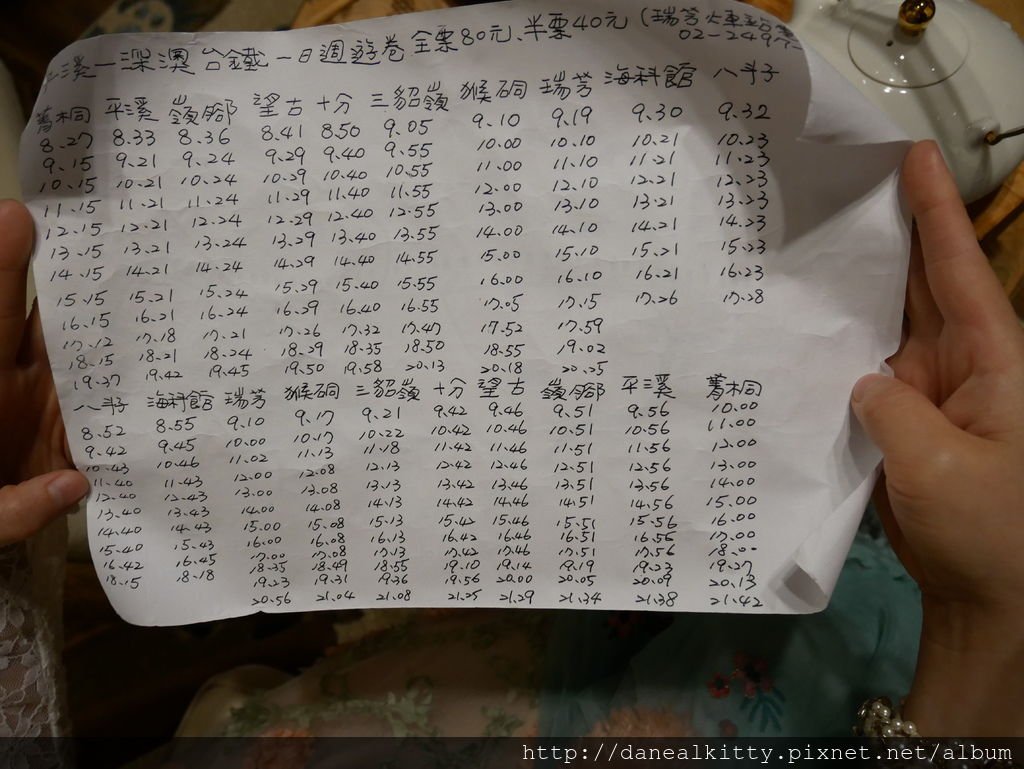 平溪-深澳台鐵一日週遊卷 全票80元、半票40元 (瑞芳火車站
02-249
菁桐 平溪 嶺腳 望古 十分 三貂嶺 猴硐 瑞芳 海科館 八斗子
8.27 8.33 8.36 8.41 8.50 9.05 9.10 9.19 9.30 9.32
9.15 9.21 9.24 9.29 9.40 9.55 10.00 10.10 10.21 10.23
10.15 10.21 10.24 10.29 10.40 10.55 11.00 11.10 11.21 11.23
11.15 11.21 11.24 11.29 11.40 11.55 12.00 12.10 12.21 12.23
12.15 12.21 12.24 12.29 12.40 12.55 13.00 13.10 13.21 13.23
13.15 13.21 13.24 13.29 13.40 13.55 14.00 14.10 14.21 14.23
14.15 14.21 14.24 14.29 14.40 14.55 15.00 15.10 15.21 15.23
15.15 15.21 15.24 15.29 15.40 15.55 16.00 16.10 16.21 16.23
16.15 16.21 16.24 16.29 16.40 16.55 17.05 17.15 17.26 17.28
17.12 17.18 17.21 17.26 17.32 17.47 17.52 17.59
18.15 18.21 18.24 18.29 18.35 18.50 18.55 19.02
19.37 19.42 19.45 19.50 19.58 20.13 20.18 20.25
八斗子 海科館 瑞芳 猴硐 三貂嶺 十分 望古 嶺腳 平溪 菁桐
8.52 8.55 9.10 9.17 9.21 9.42 9.46 9.51 9.56 10.00
9.42 9.45 10.00 10.17 10.22 10.42 10.46 10.51 10.56 11.00
10.43 10.46 11.02 11.13 11.18 11.42 11.46 11.51 11.56 12.00
11.40 11.43 12.00 12.08 12.13 12.42 12.46 12.51 12.56 13.00
12.40 12.43 13.00 13.08 13.13 13.42 13.46 13.51 13.56 14.00
13.40 13.43 14.00 14.08 14.13 14.42 14.46 14.51 14.56 15.00
14.40 14.43 15.00 15.08 15.13 15.42 15.46 15.51 15.56 16.00
15.40 15.43 16.00 16.08 16.13 16.42 16.46 16.51 16.56 17.00
16.42 16.45 17.00 17.08 17.13 17.42 17.46 17.51 17.56 18.00
18.15 18.18 18.35 18.49 18.55 19.10 19.14 19.19 19.23 19.27
19.23 19.31 19.36 19.56 20.00 20.05 20.09 20.13
20.56 21.04 21.08 21.25 21.29 21.34 21.38 21.42
http://danealkitty.pixnet.net/album